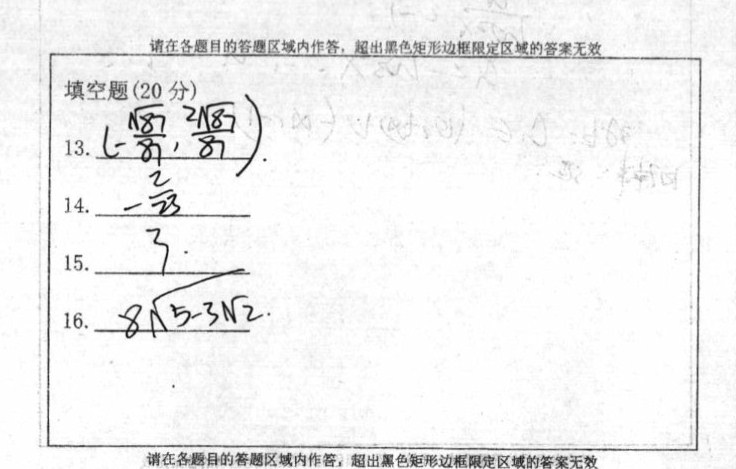 请在各题目的答题区域内作答，超出黑色矩形边框限定区域的答案无效
填空题(20 分)
13. (-√87/87, 2√87/87).
14. -2/23
15. 3.
16. 8√(5-3√2).
请在各题目的答题区域内作答，超出黑色矩形边框限定区域的答案无效